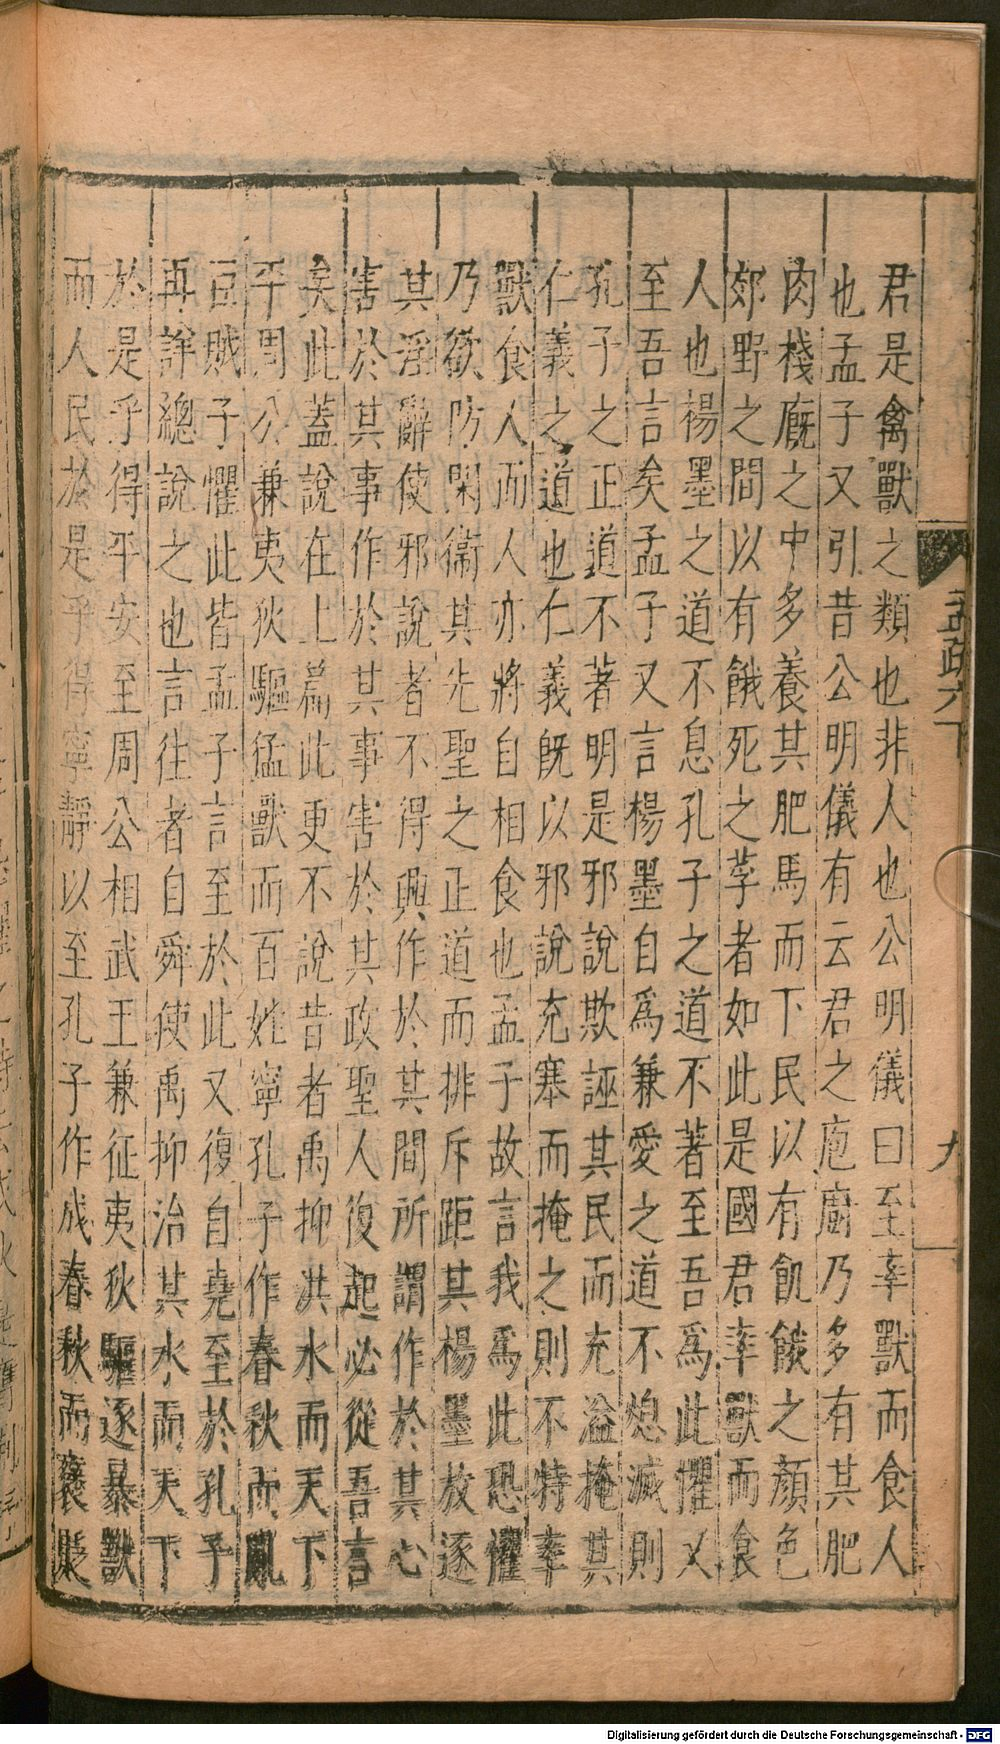 君是禽獸之類也非人也公明儀曰至率獸而食人
也孟子又引昔公明儀有云君之庖廚乃多有其肥
肉棧廐之中多養其肥馬而下民以有飢餓之顏色
郊野之間以有餓死之莩者如此是國君率獸而食
人也楊墨之道不息孔子之道不著至吾爲此懼乂
至吾言矣孟子又言楊墨自爲兼愛之道不熄滅則
孔子之正道不著明是邪說欺誣其民而充溢掩其
仁義之道也仁義旣以邪說充塞而掩之則不特率
獸食人而人亦將自相食也孟子故言我爲此恐懼
乃欲防閑衞其先聖之正道而排斥距其楊墨放逐
其淫辭使邪說者不得興作於其間所謂作於其心
害於其事作於其事害於其政聖人復起必從吾言
矣此蓋說在上篇此更不說昔者禹抑洪水而天下
平周公兼夷狄驅猛獸而百姓寧孔子作春秋而亂
臣賊子懼此皆孟子言至於此又復自堯至於孔子
再詳總說之也言往者自舜使禹抑治其水而天下
於是乎得平安至周公相武王兼征夷狄驅逐暴獸
而人民於是乎得寧靜以至孔子作成春秋而褒貶
孟疏六下
九
Digitalisierung gefördert durch die Deutsche Forschungsgemeinschaft - DFG